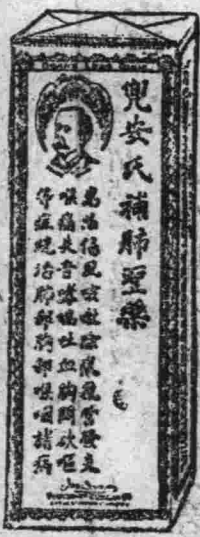 兜安氏補肺聖藥
專治傷風咳嗽痰飲氣管發炎
喉痛失音哮喘吐血胸悶欬嘔
等症統治肺部胸部喉咽諸病